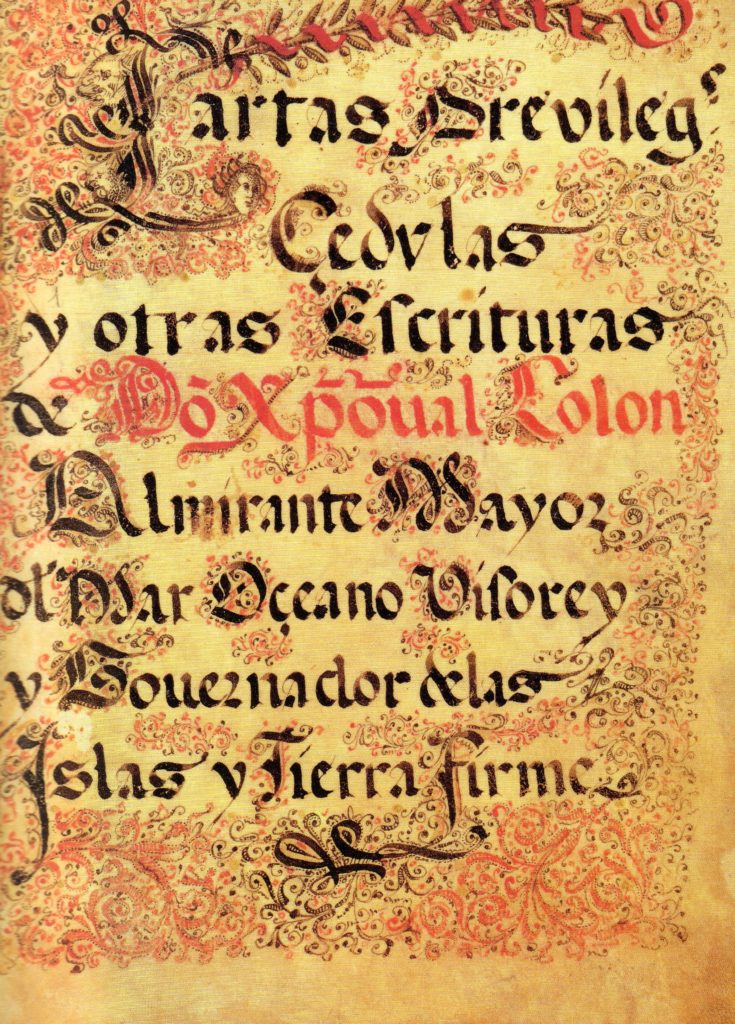 Cartas Previlegˢ
Çedvlas
y otras Escrituras
de Dõ Xp̃õual Colon
Almirante Mayor
dl̃ Mar Oçeano Visorey
y Gouernador delas
Islas y Tierra firme